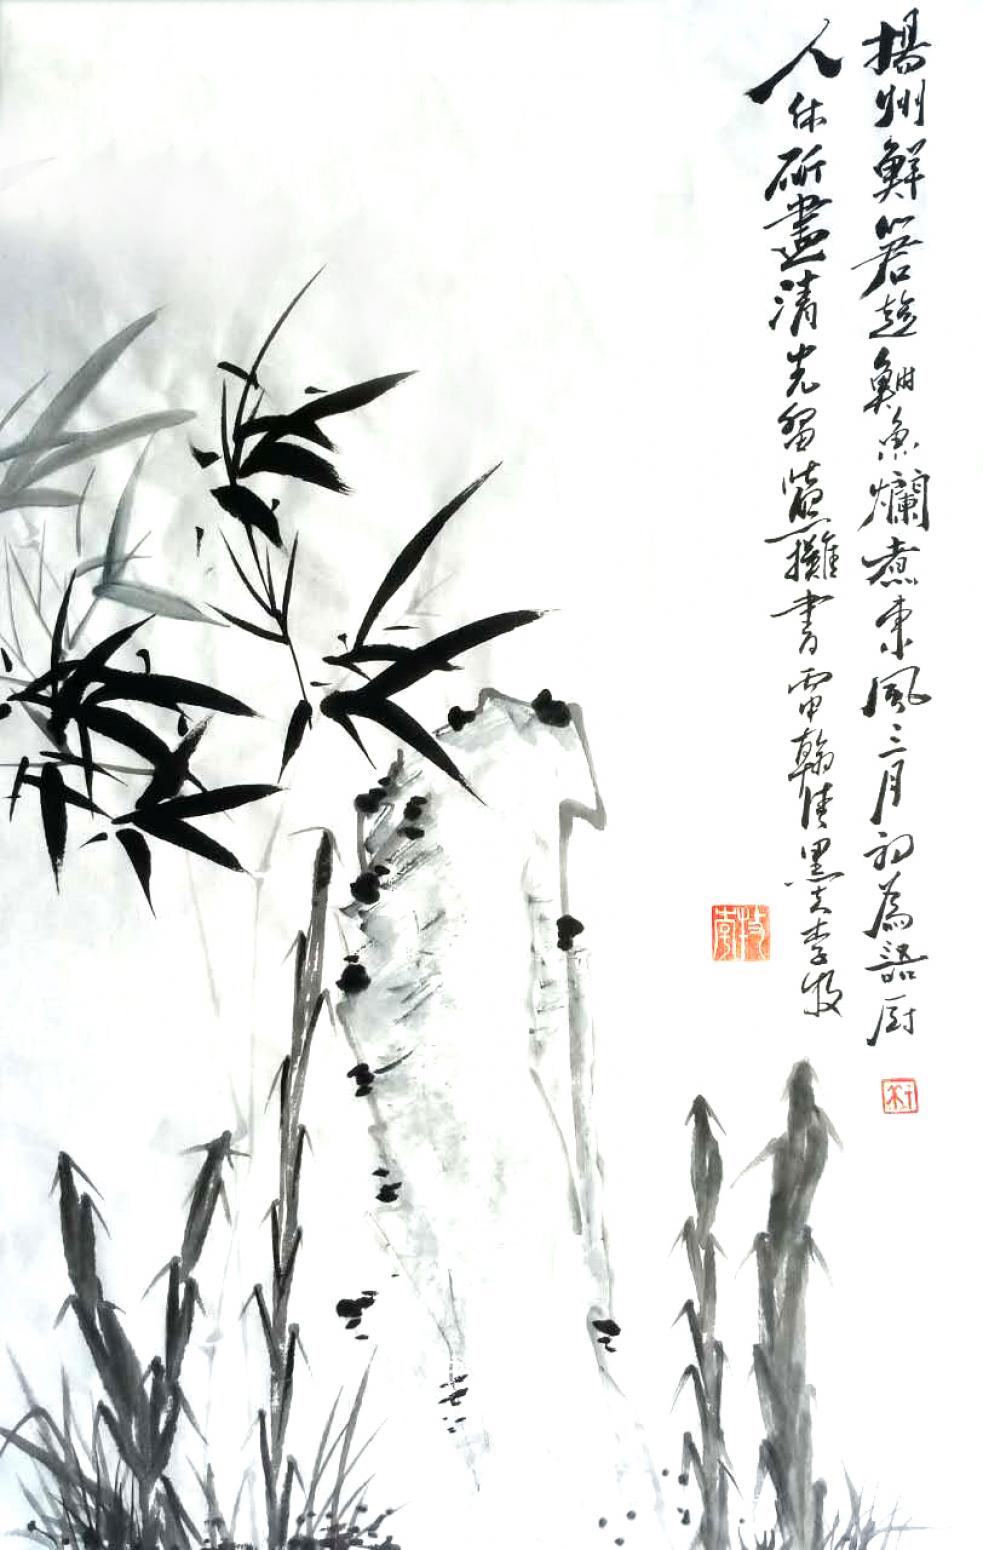 揚州鮮筍趁鰣魚爛煮東風三月初為語厨
人休斫盡清光留此照攤書李牧